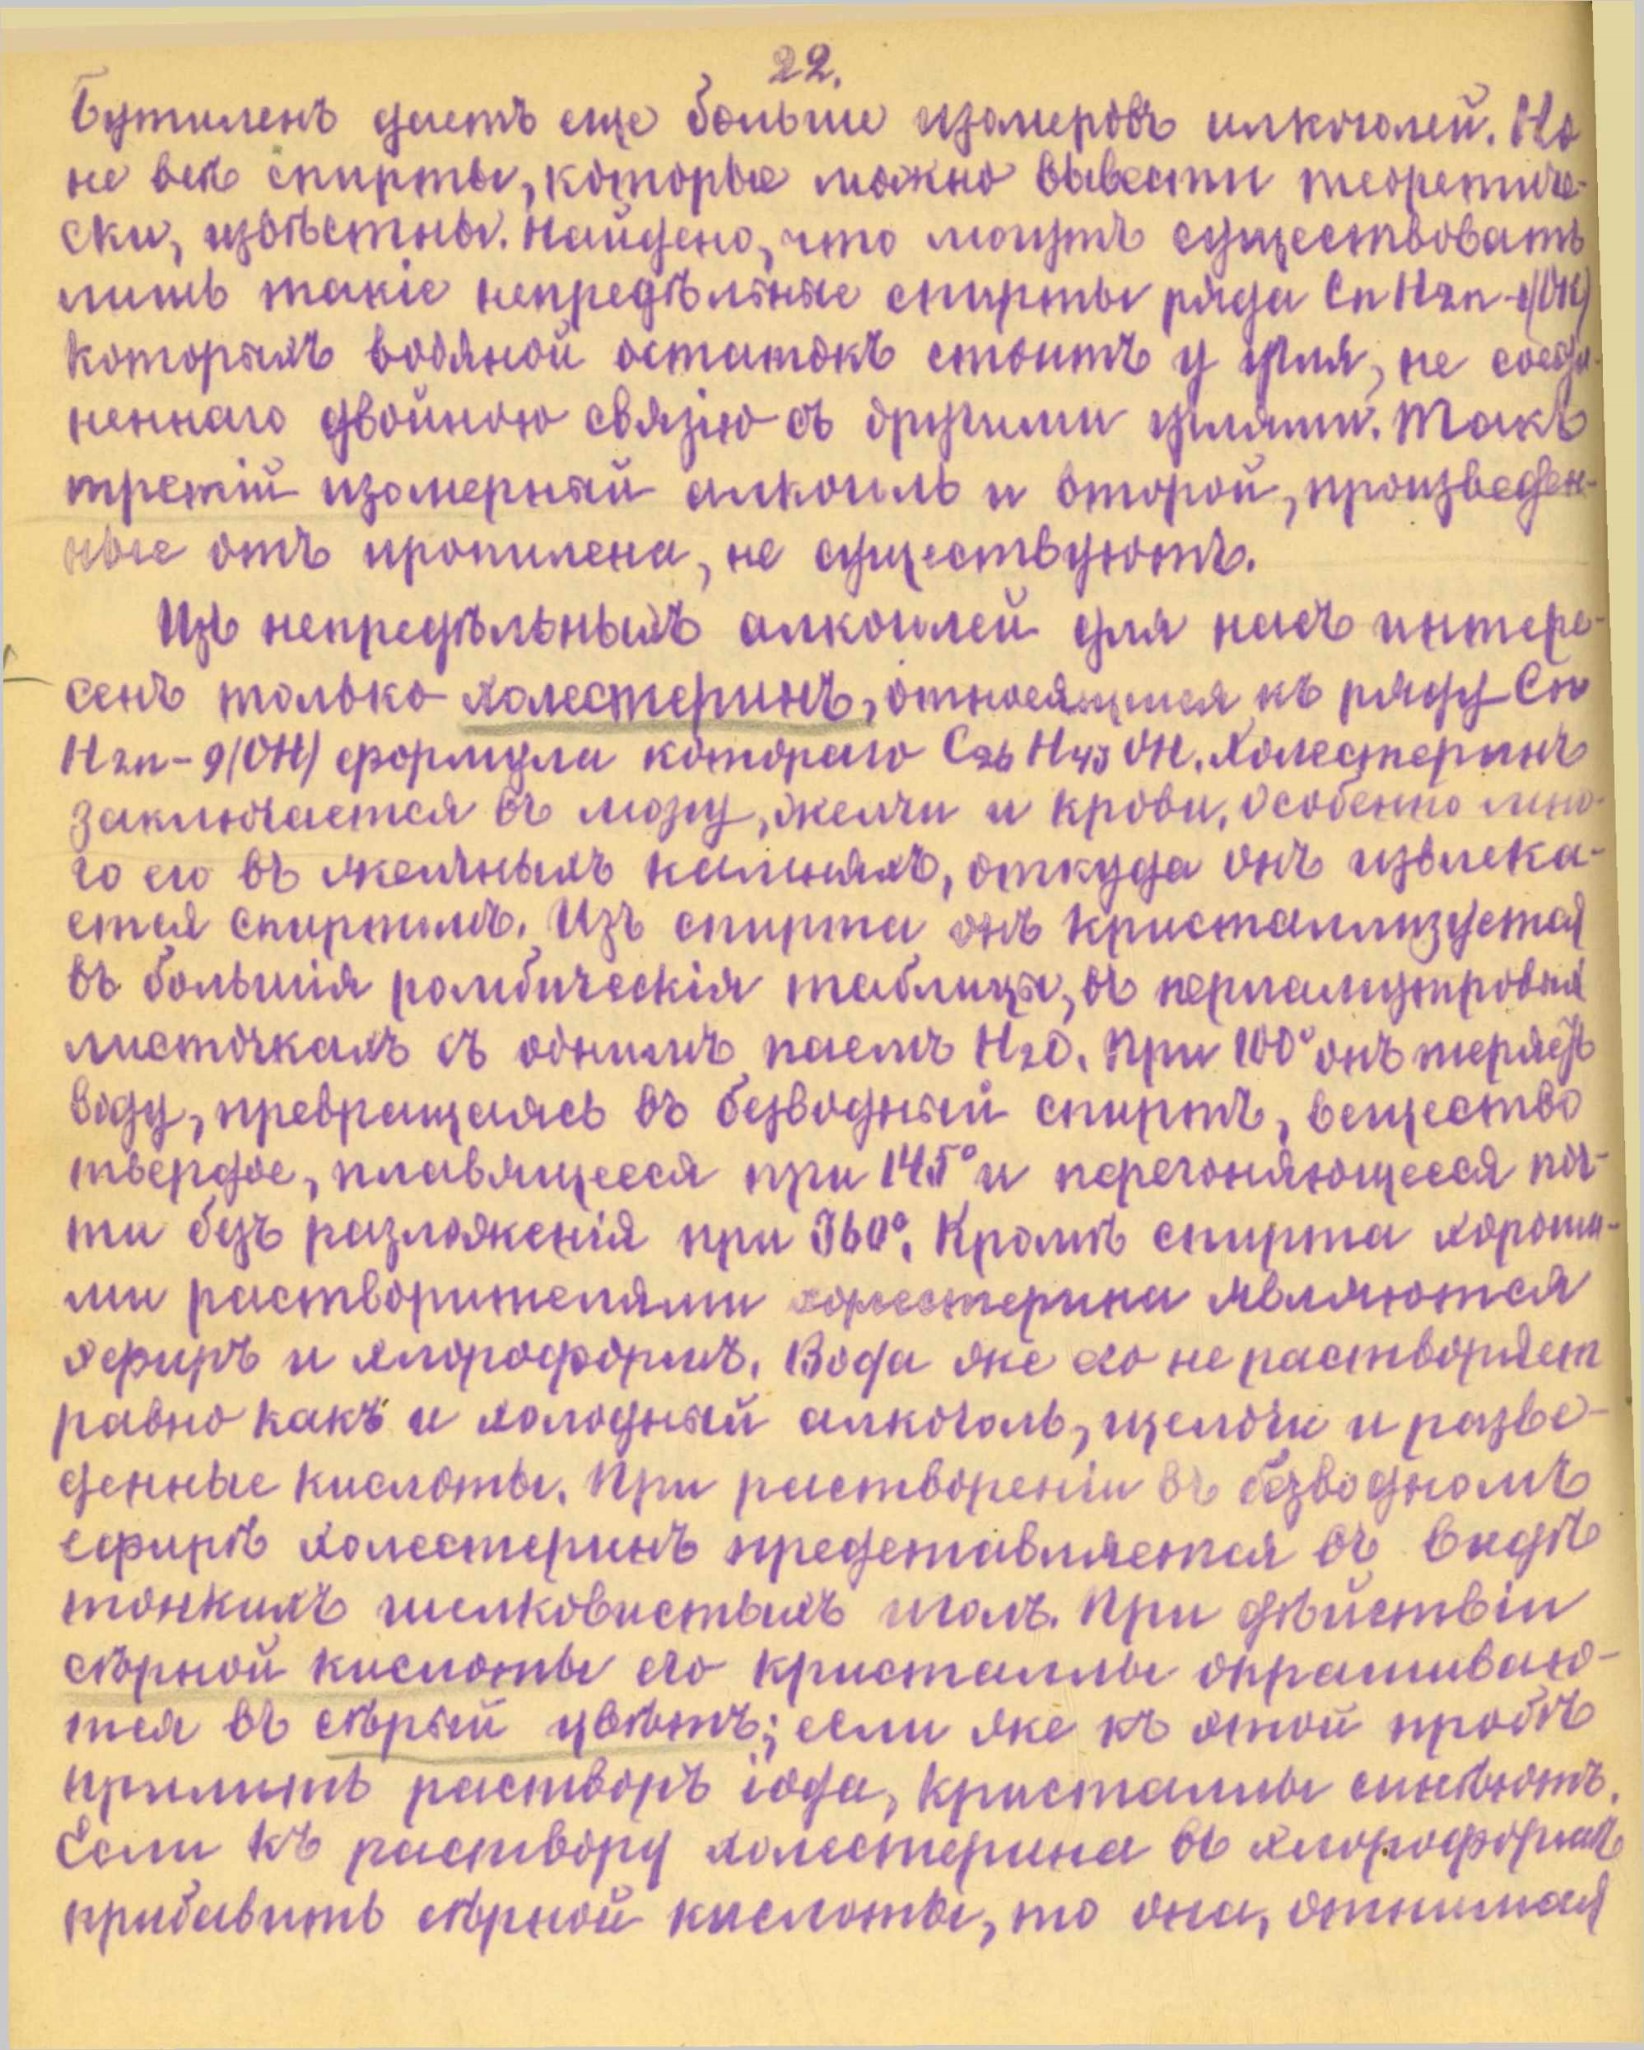 22.
Бутиленъ даетъ еще больше изомеровъ алкоголей. Но
не все спирты, которые можно вывести теоретиче-
ски, извѣстны. Найдено, что могутъ существовать
лишь такіе непредѣльные спирты ряда CnH2n-1(OH)
которыхъ водяной остатокъ стоитъ у угля, не соеди-
неннаго двойною связію съ другими углями. Такъ
третій изомерный алкоголь и второй, произведен-
ные отъ пропилена, не существуютъ.
Изъ непредѣльныхъ алкоголей для насъ интере-
сенъ только холестеринъ, относящійся къ ряду Cn
H2n-9(OH) формула котораго C26H43OH. Холестеринъ
заключается въ мозгу, желчи и крови, особенно мно-
го его въ желчныхъ камняхъ, откуда онъ извлека-
ется спиртомъ. Изъ спирта онъ кристаллизуется
въ большія ромбическія таблицы, въ перламутровыя
листочкахъ съ однимъ паемъ H2O. При 100° онъ теряетъ
воду, превращаясь въ безводный спиртъ, вещество
твердое, плавящееся при 145° и перегоняющееся поч-
ти безъ разложенія при 360°. Кромѣ спирта хороши-
ми растворителями холестерина являются
эфиръ и хлороформъ. Вода же его не растворяет
равно какъ и холодный алкоголь, щелочи и разве-
денные кислоты. При раствореніи въ безводномъ
ефирѣ холестеринъ представляется въ видѣ
тонкихъ шелковистыхъ иголъ. При дѣйствіи
сѣрной кислоты его кристаллы окрашиваю-
тся въ сѣрый цвѣтъ; если же къ этой пробѣ
прилить растворъ іода, кристаллы синѣютъ.
Если къ раствору холестерина въ хлороформѣ
прибавить сѣрной кислоты, то она, отнимая